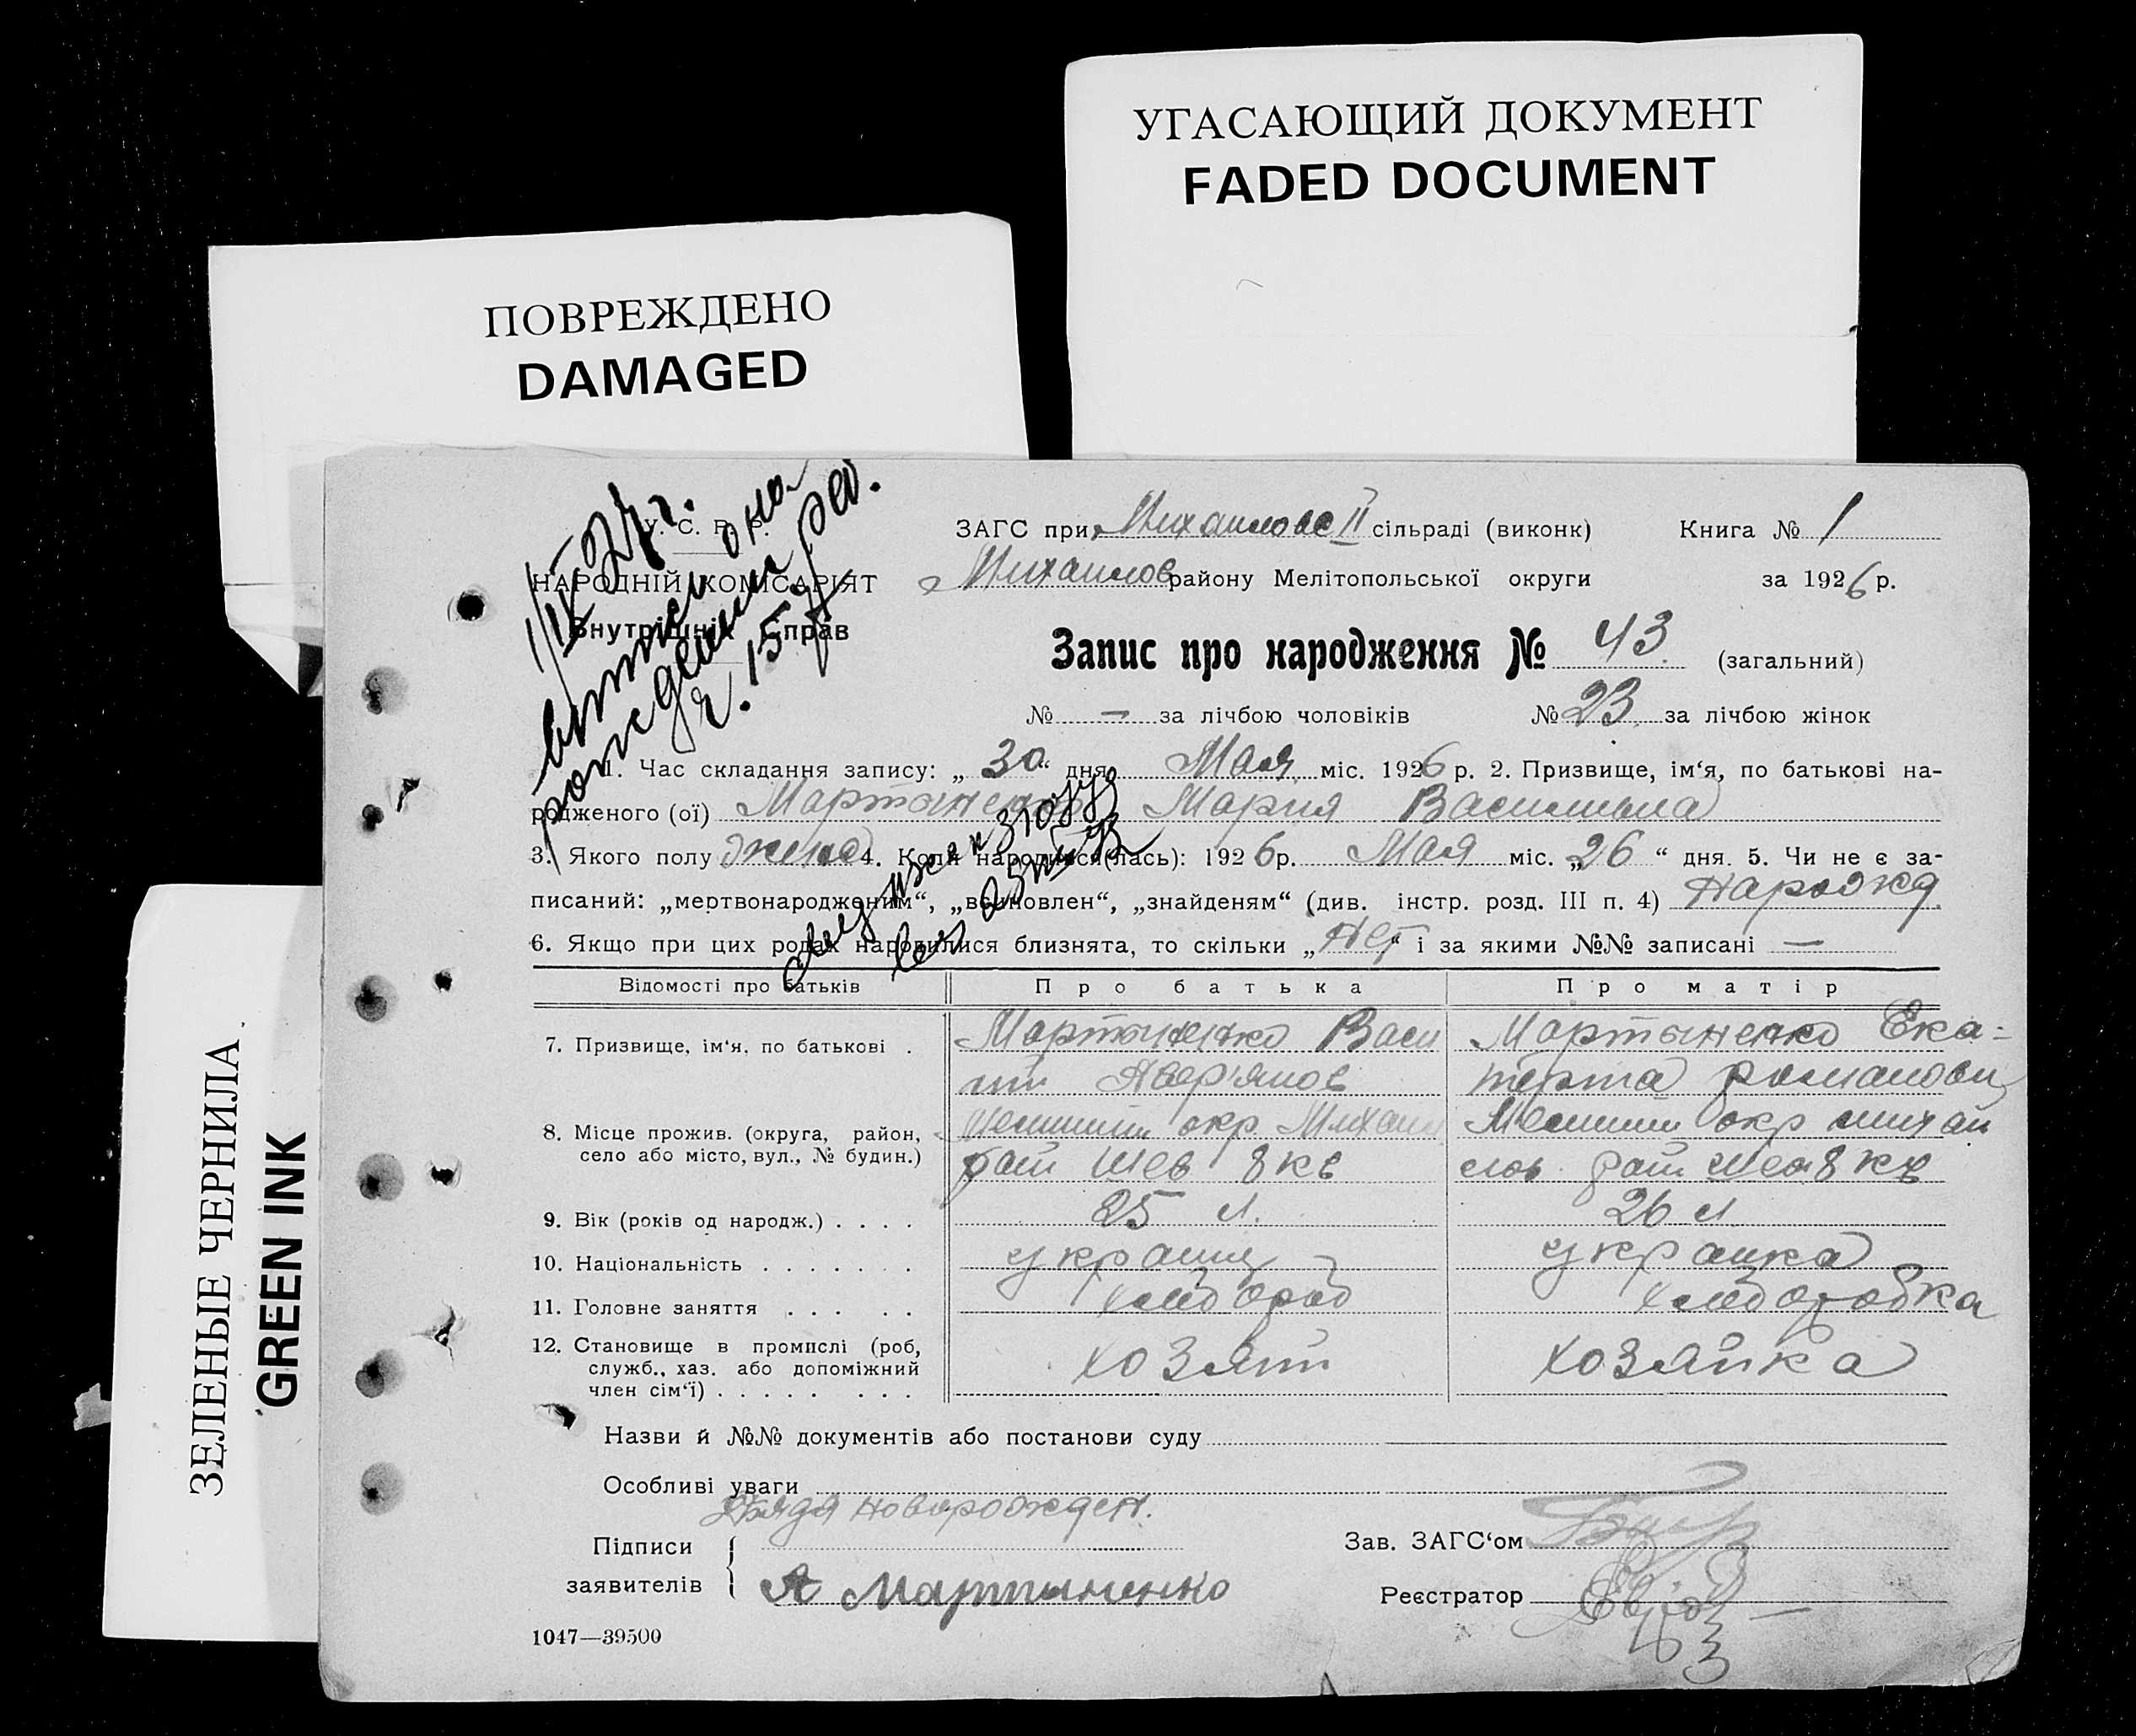 УГАСАЮЩИЙ ДОКУМЕНТ
FADED DOCUMENT
ПОВРЕЖДЕНО
DAMAGED
ЗЕЛЕНЫЕ ЧЕРНИЛА
GREEN INK
У. С. Р. Р.
НАРОДНІЙ КОМІСАРІЯТ
Внутрішніх Справ
ЗАГС при Михайлове II сільраді (виконк) Книга № 1
Михайлов району Мелітопольської округи за 1926 р.
Запис про народження № 43 (загальний)
№ — за лічбою чоловіків № 23 за лічбою жінок
1. Час складання запису: „ 30 “ дня Мая міс. 1926 р. 2. Призвище, ім‘я, по батькові на-
родженого (ої) Мартыненко Мария Васильевна
3. Якого полу женс 4. Коли народився(лась): 1926 р. Мая міс. „ 26 “ дня. 5. Чи не є за-
писаний: „мертвонародженим“, „встновлен“, „знайденям“ (див. інстр. розд. III п. 4) Нарожд.
6. Якщо при цих родах народилися близнята, то скільки „ Нет “ і за якими №№ записані —
Відомості про батьків Про батька Про матір
7. Призвище, ім‘я, по батькові . Мартыненко Васи Мартыненко Ека=
Авер'янов
8. Місце прожив. (округа, район, окр. Михайл окр михай
село або місто, вул., № будин.) рай Шев 8 кв лов рай Шев 8 кв
9. Вік (років од народж.) . . . . 25 л. 26 л.
10. Національність . . . . . . . украинец украинка
11. Головне заняття . . . . . хлебороб хлеборобка
12. Становище в промислі (роб, хозяин хозяйка
служб., хаз. або допоміжний
член сім‘ї) . . . . . . . .
Назви й №№ документів або постанови суду
Особливі уваги
Дядя новорожден.
Підписи
Зав. ЗАГС‘ом
заявителів А Мартыненко
Реєстратор
1047—39500